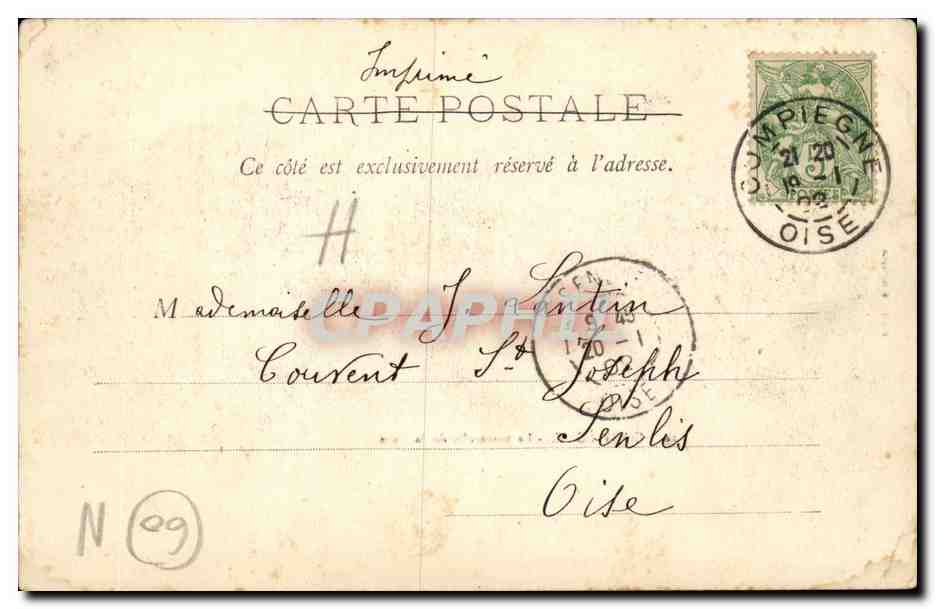 Imprimé
CARTE POSTALE
Ce côté est exclusivement réservé à l'adresse.
COMPIEGNE
21 20
19 -1
OISE
H
Mademoiselle J.
CPAPHIL
Couvent St Joseph
Senlis
Oise
9 45
20 -1
OISE
N 99